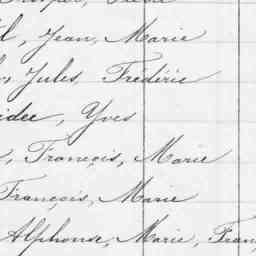 Jean, Marie
Jules, Frédéric
Yves
François, Marie
François, Marie
Alphonse, Marie, Fran